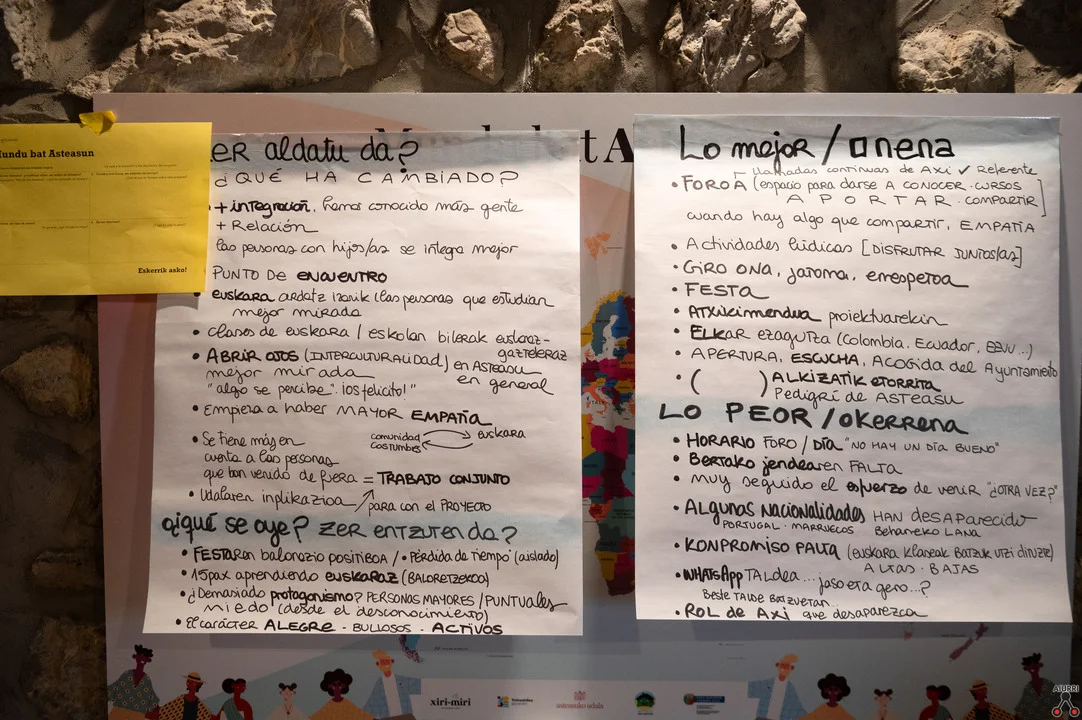 undu bat Asteasun
Eskerrik asko!
tA
ER aldatu da?
¿QUÉ HA CAMBIADO?
+ integración, hemos conocido más gente
+ Relación
las personas con hijos/as se integra mejor
PUNTO DE ENCUENTRO
euskara ardatz izanik (las personas que estudian
mejor mirada
• clases de euskara / eskolan bilerak euskaraz-
gazteleraz
• ABRIR OJOS (INTERCULTURALIDAD) en Asteasu
mejor mirada en general
"algo se percibe". ¡os felicito!"
• Empieza a haber MAYOR EMPATÍA
comunidad euskara
costumbes
• Se tiene más en
cuenta a las personas
que han venido de fuera = TRABAJO CONJUNTO
• Udalaren inplikazioa para con el PROYECTO
¿qué se oye? ZER entzuten da?
• FESTAren balorazio positiboa / • Pérdida de tiempo (aislado)
• 15pax aprendiendo euskaraz (BALORETZEKOA)
• ¿Demasiado protagonismo? PERSONAS MAYORES / PUNTUALES
miedo (desde el desconocimiento)
• El carácter ALEGRE - BULLOSOS - ACTIVOS
Lo mejor / onena
llamadas continuas de Axi ✓ Referente
• FOROA (espacio para darse A CONOCER · CURSOS
APORTAR · COMPARTIR)
cuando hay algo que compartir, EMPATÍA
• Actividades lúdicas [DISFRUTAR JUNTOS/AS]
• GIRO ONA, jatorra, emespetoa
• FESTA
• Atxikimendua proiektuarekin
• ELKAR ezagutza (Colombia, Ecuador, EEUU...)
• APERTURA, ESCUCHA, Acogida del Ayuntamiento
• ( ) ALKIZATIK etorrita
Pedigrí de ASTEASU
LO PEOR / okerrena
• HORARIO FORO / DÍA "NO HAY UN DÍA BUENO"
• Bertako jendearen FALTA
• muy seguido el esfuerzo de venir "¿OTRA VEZ?"
• Algunas Nacionalidades HAN desaparecido
PORTUGAL - MARRUECOS Beharreko LANA
• KONPROMISO FALTA (euskara klaseak batzuk utzi dituzte)
ALTAS - BAJAS
• WHATSApp TALdea... jaso eta gero...?
Beste TALDE BATZUETAN...
• ROL de Axi que desaparezca
xiri-miri
asteasuko udala
AIURRI